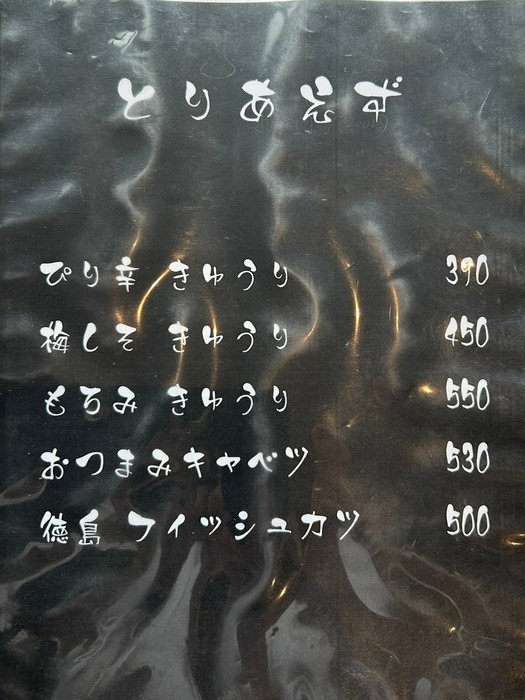 とりあえず
ぴり辛 きゅうり 390
梅しそ きゅうり 450
もろみ きゅうり 550
おつまみキャベツ 530
徳島 フィッシュカツ 500